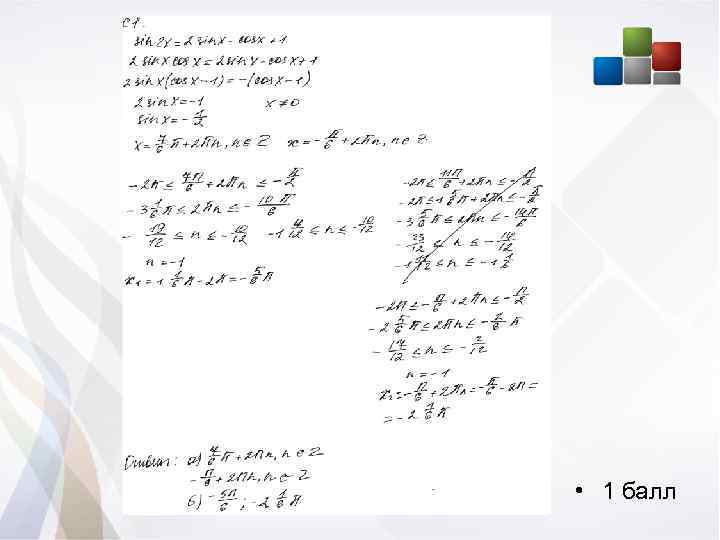 С1.
sin2x = 2sinx - cosx + 1
2sinx cosx = 2sinx - cosx + 1
2sinx(cosx-1) = -(cosx-1)
2sinx = -1 x ≠ 0
sinx = -1/2
x = 7/6 π + 2πn, n ∈ Z x = -π/6 + 2πn, n ∈ Z
-2π ≤ 7π/6 + 2πn ≤ -π/2
-3 1/6 π ≤ 2πn ≤ -10π/6
-19/12 ≤ n ≤ -10/12 -1 7/12 ≤ n ≤ -10/12
n = -1
x₁ = 1 1/6 π - 2π = -5/6 π
-2π ≤ 11π/6 + 2πn ≤ -π/2
-2π ≤ 1 5/6 π + 2πn ≤ -π/2
-3 5/6 π ≤ 2πn ≤ -14π/6
-23/12 ≤ n ≤ -14/12
-1 11/12 ≤ n ≤ -1 1/6
-2π ≤ -π/6 + 2πn ≤ -π/2
-2 5/6 π ≤ 2πn ≤ -2/6 π
-17/12 ≤ n ≤ -2/12
n = -1
x₂ = -π/6 + 2πn = -π/6 - 2π =
= -2 1/6 π
Ответ: а) 7/6 π + 2πn, n ∈ Z
-π/6 + 2πn, n ∈ Z
б) -5π/6 ; -2 1/6 π
• 1 балл